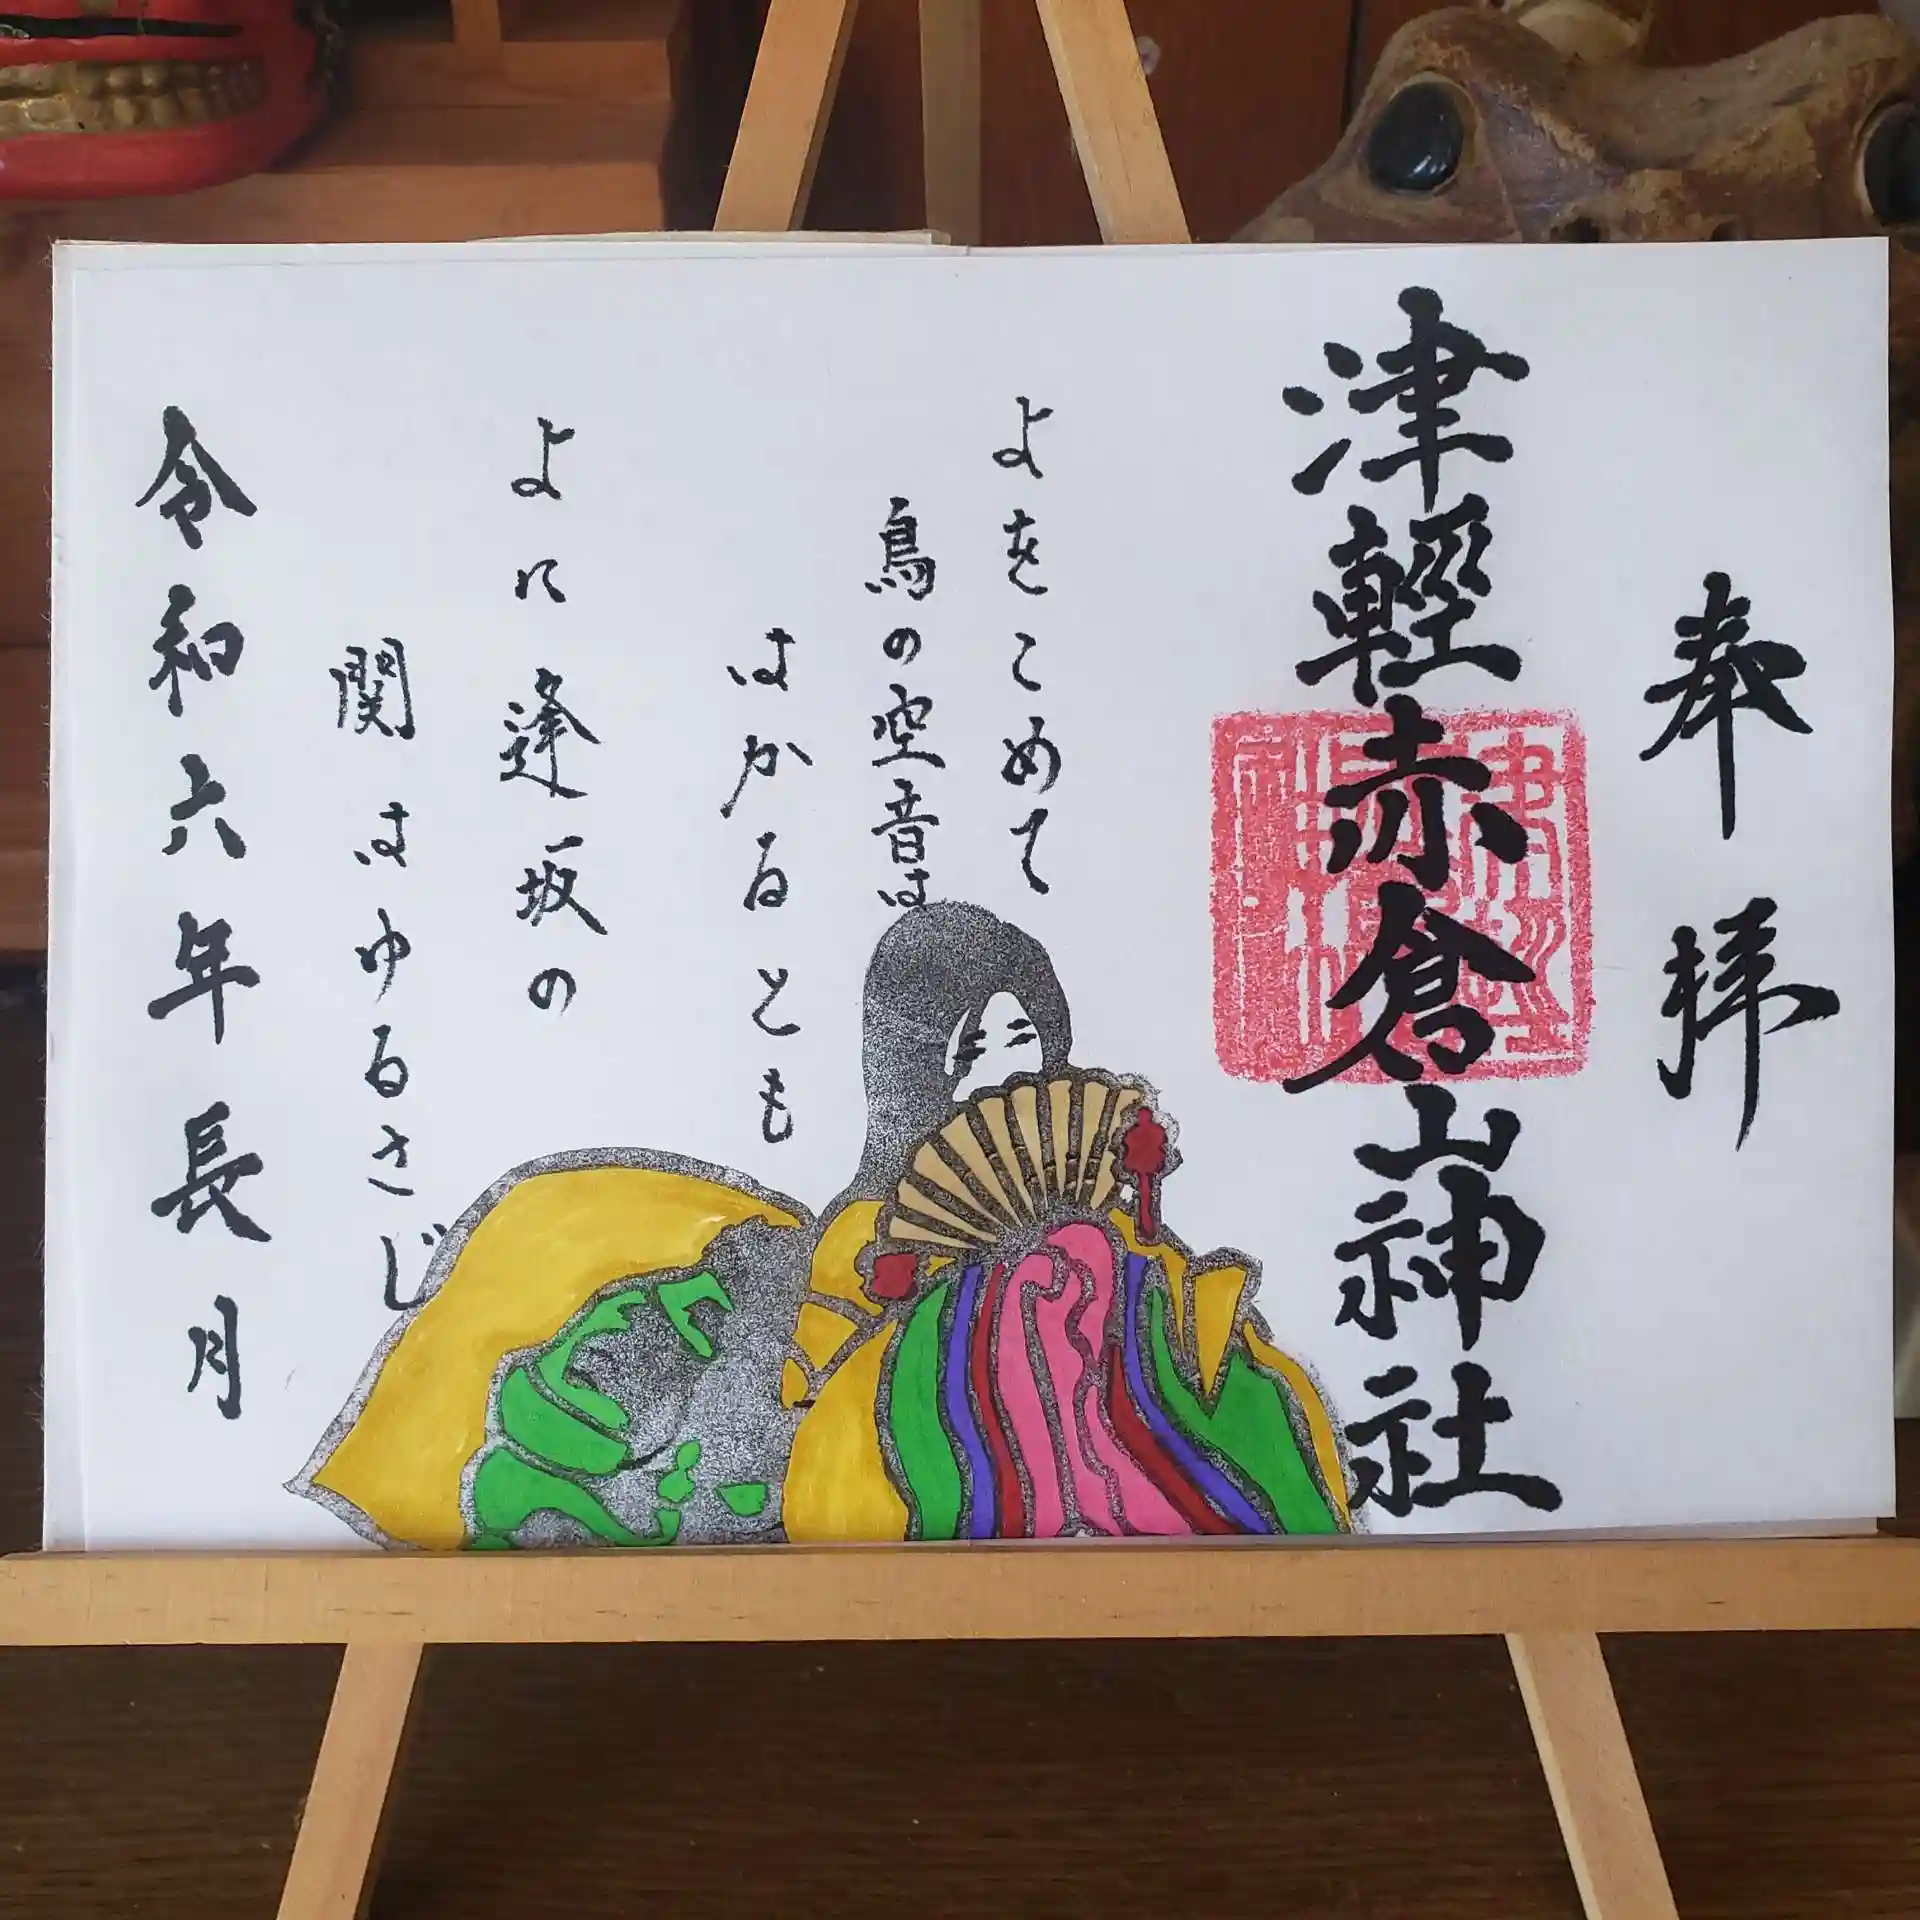 奉拝
津輕赤倉山神社
よをこめて
鳥の空音は
はかるとも
よに逢坂の
関はゆるさじ
令和六年長月